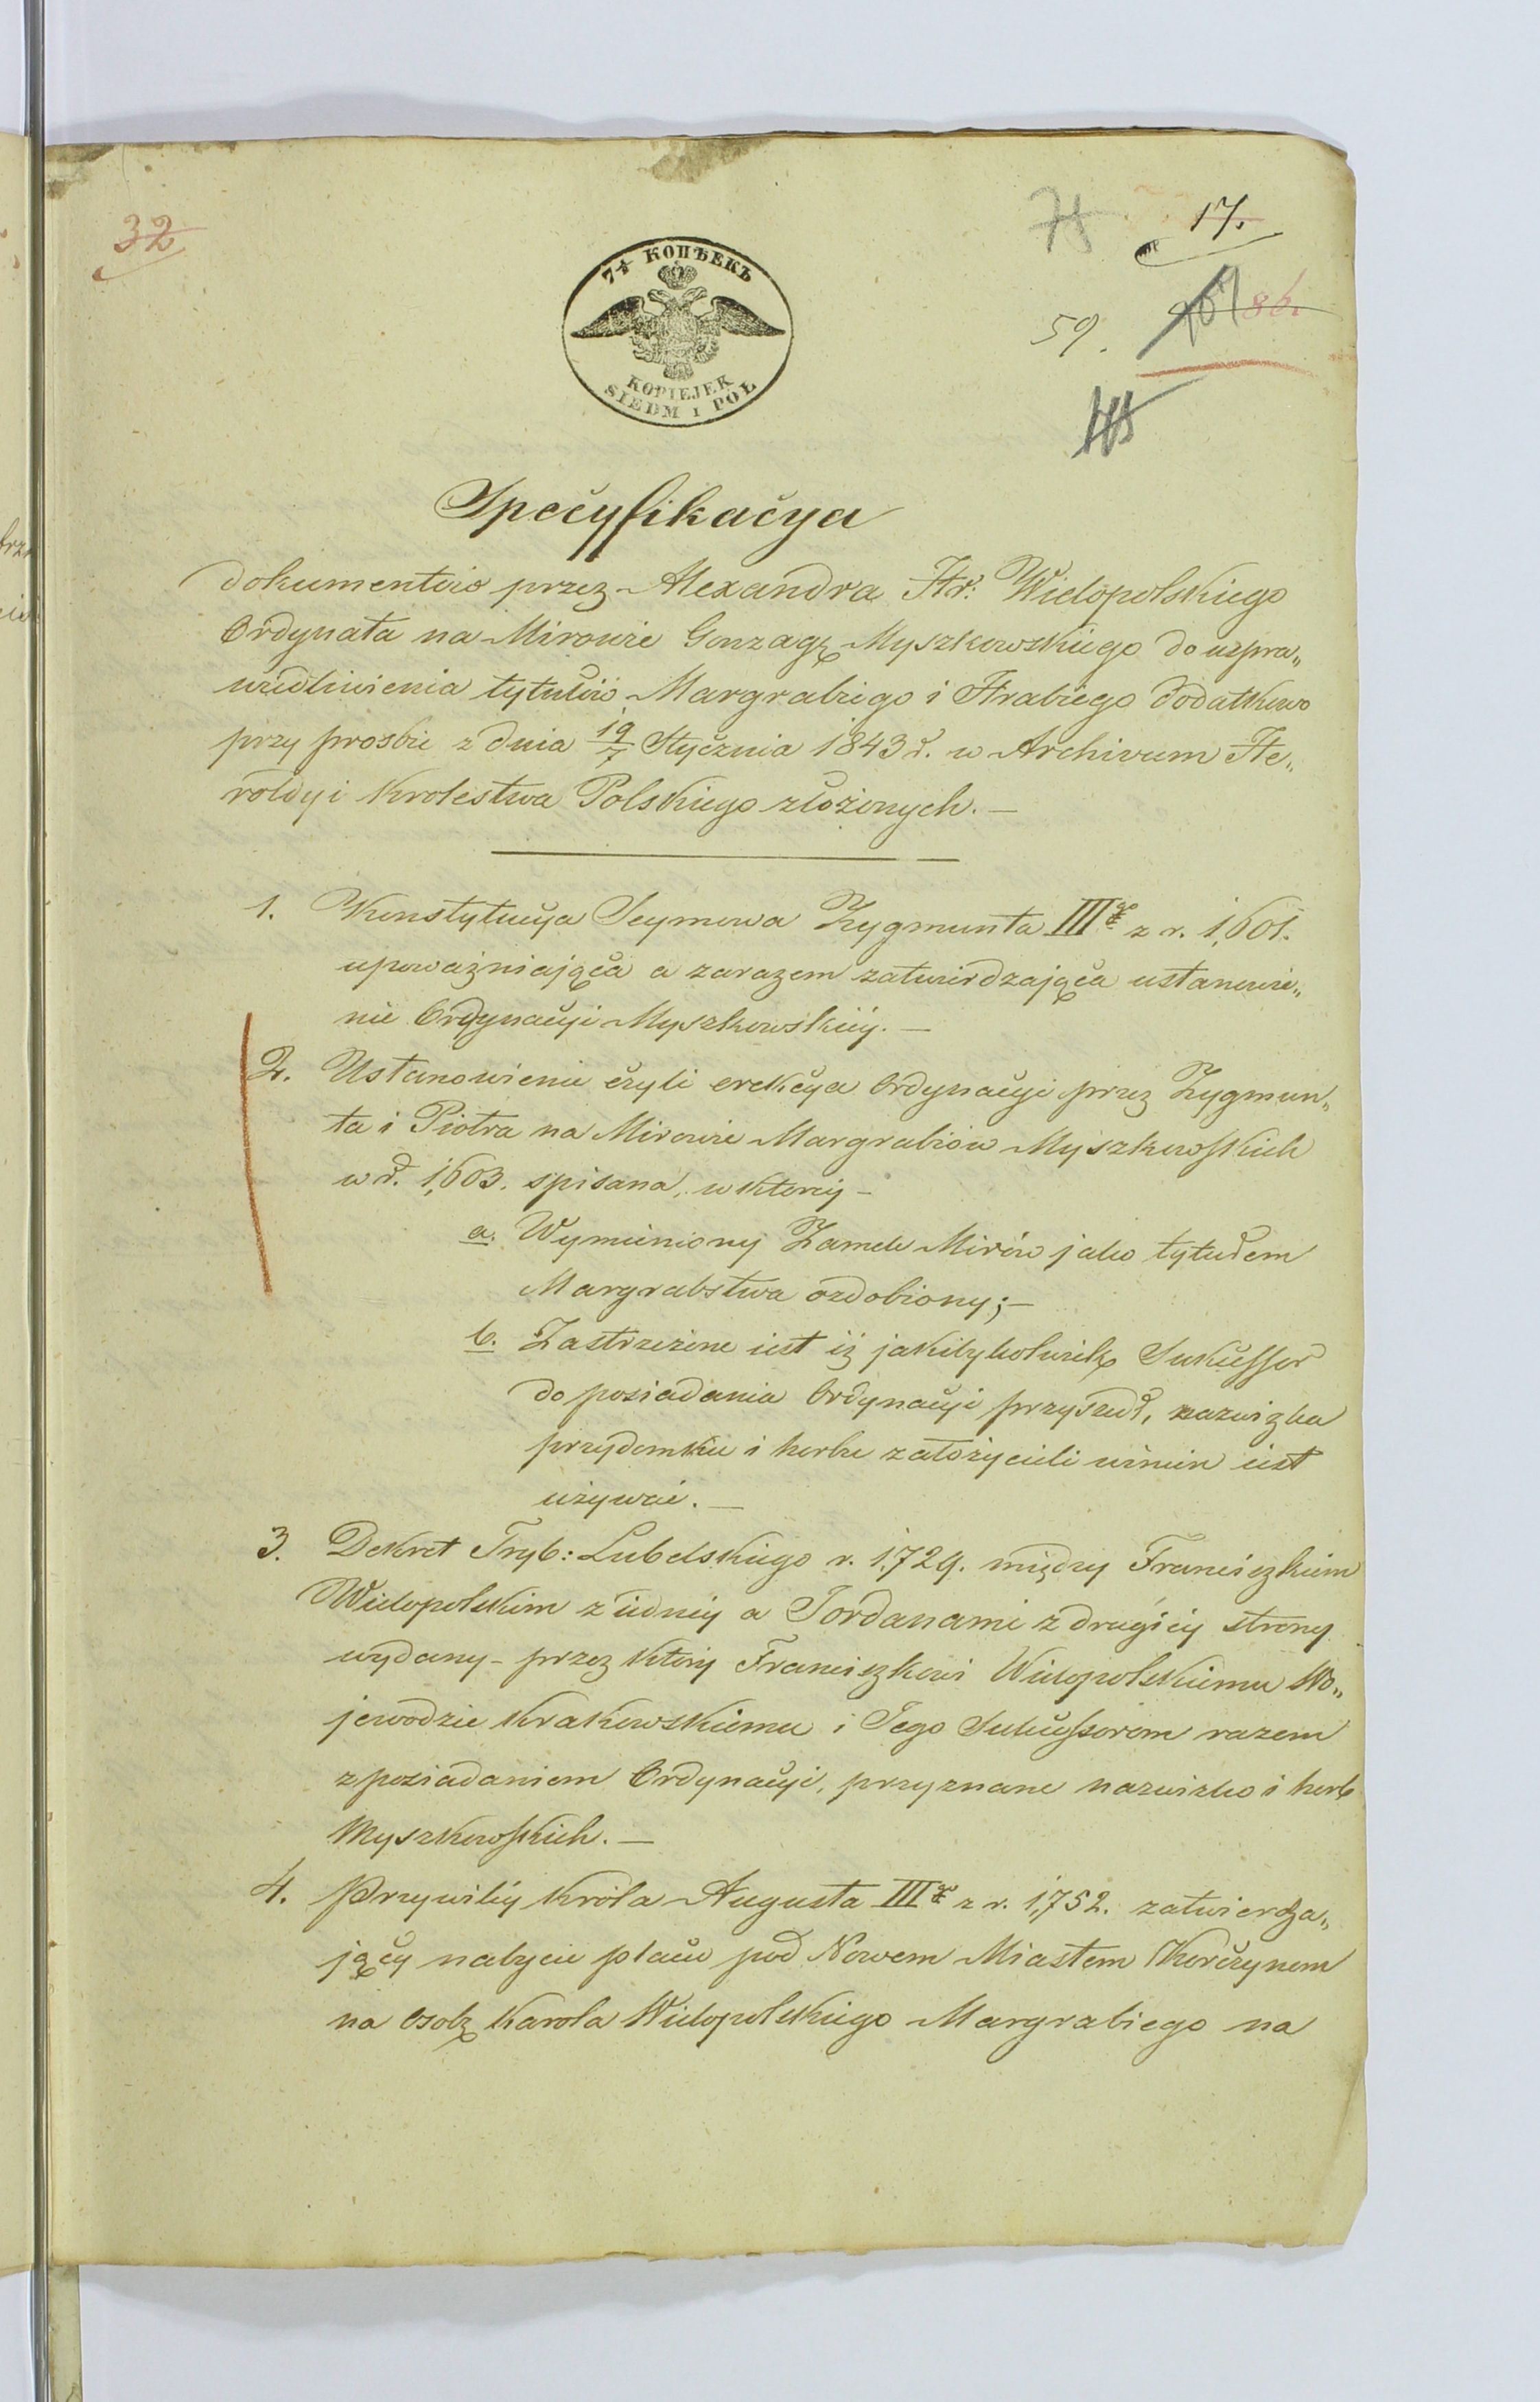 32
17.
7½ КОПѢЕКЪ
KOPIEJEK
SIEDM I PÓŁ
59.
86.
Specyfikacya
dokumentów przez Alexandra Hr: Wielopolskiego
Ordynata na Mirowie Gonzagę Myszkowskiego do uspra„
wiedliwienia tytułów Margrabiego i Hrabiego dodatkowo
przy prośbie z dnia 19/7 Stycznia 1843 r. w Archivum He„
roldyi Krolestwa Polskiego złożonych. —
1. Konstytucya Seymowa Zygmunta IIIgo z r. 1,601.
upoważniająca a zarazem zatwierdzająca ustanowie„
nie Ordynacyi Myszkowskiéy. —
2. Ustanowienie czyli erekcya Ordynacyi przez Zygmun„
ta i Piotra na Mirowie Margrabiów Myszkowskich
w r. 1,603. spisana, w któréy —
a. Wymieniony Zamek Mirów jako tytułem
Margrabstwa ozdobiony; —
b. Zastrzeżone iest iż jakikolwiek Sukcessor
do posiadania Ordynacyi przyszedł, nazwiska
przydomku i herbu założycieli winien iest
używać. —
3. Dekret Tryb: Lubelskiego r. 1,729. między Franciszkiem
Wielopolskim z iednéy a Jordanami z drugiéy strony
wydany – przez który Franciszkowi Wielopolskiemu Wo„
jewodzie Krakowskiemu i Jego Sukcessorom razem
z posiadaniem Ordynacyi, przyznane nazwisko i herb
Myszkowskich. —
4. Przywiléy Króla Augusta IIIgo z r. 1,752. zatwierdza„
jący nabycie placu pod Nowem Miastem Korczynem
na osobę Karola Wielopolskiego Margrabiego na